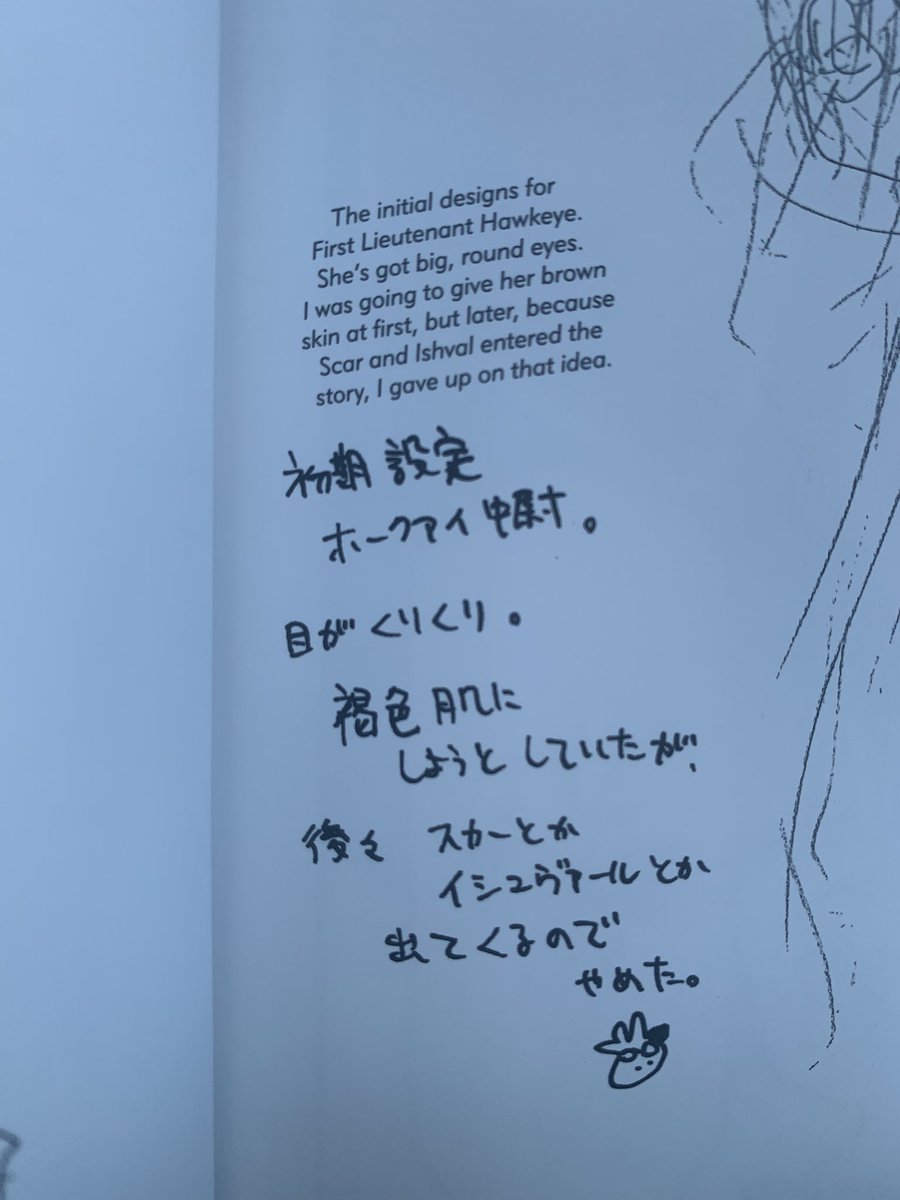 The initial designs for
First Lieutenant Hawkeye.
She's got big, round eyes.
I was going to give her brown
skin at first, but later, because
Scar and Ishval entered the
story, I gave up on that idea.
初期設定
ホークアイ中尉。
目がくりくり。
褐色肌に
しようとしていたが、
後々 スカーとか
イシュヴァールとか
出てくるので
やめた。